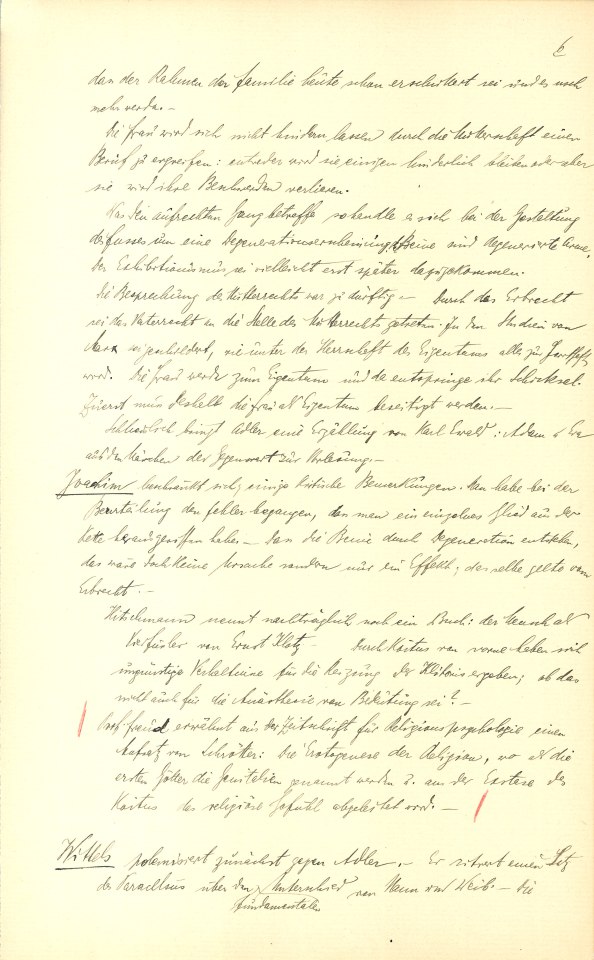 6
dass der Rahmen der Familie heute schon erschüttert sei und es noch
mehr werde.-
Die Frau wird sich nicht hindern lassen durch die Mutterschaft einen
Beruf zu ergreifen: entweder wird sie einigen hinderlich bleiben oder aber
sie wird ihre Beschwerden verlieren.
Was den aufrechten Gang betreffe so handle es sich bei der Gestaltung
des Fusses um eine Degenerationserscheinung; Beine sind degenerierte Arme.
Der Exhibitionismus sei vielleicht erst später dazugekommen.
Die Besprechung des Mutterrechts war zu dürftig - Durch das Erbrecht
sei das Vaterrecht an die Stelle des Mutterrechts getreten. In den Studien von
Marx sei geschildert, wie unter der Herrschaft des Eigentums alles zur
wird. Die Frau werde zum Eigentum und da entspringe ihr Schicksal.
Zuerst muss deshalb die Frau als Eigentum beseitigt werden.-
Schliesslich bringt Adler eine Erzählung von Karl Ewald: Adam u Eva
aus den Märchen der Gegenwart zur Vorlesung.-
Joachim beschränkt sich einige kritische Bemerkungen. Man habe bei der
Beurteilung den Fehler begangen, dass man ein einzelnes Glied aus der
Kette herausgerissen habe.- Dass die Beine durch Degeneration entstehen,
das wäre doch keine Ursache sondern nur ein Effekt; dasselbe gelte vom
Erbrecht.-
Hitschmann nennt nachträglich noch ein Buch: der Mensch als
Vierfüssler von Ernst Klotz - Durch Koitus von vorne haben sich
ungünstige Verhältnisse für die Reizung der Klitoris ergeben; ob das
nicht auch für die Anästhesie von Bedeutung sei? -
Prof. Freud erwähnt aus der Zeitschrift für Religionspsychologie einen
Aufsatz von Schrötter: Die Erotogenese der Religion, wo als die
ersten Götter die Genitalien genannt werden u. aus der Exstase des
Koitus das religiöse Gefühl abgeleitet wird.-
Wittels polemisiert zunächst gegen Adler.- Er zitiert einen Satz
des Paracelsus über den Unterschied von Mann und Weib.- Die
fundamentalen